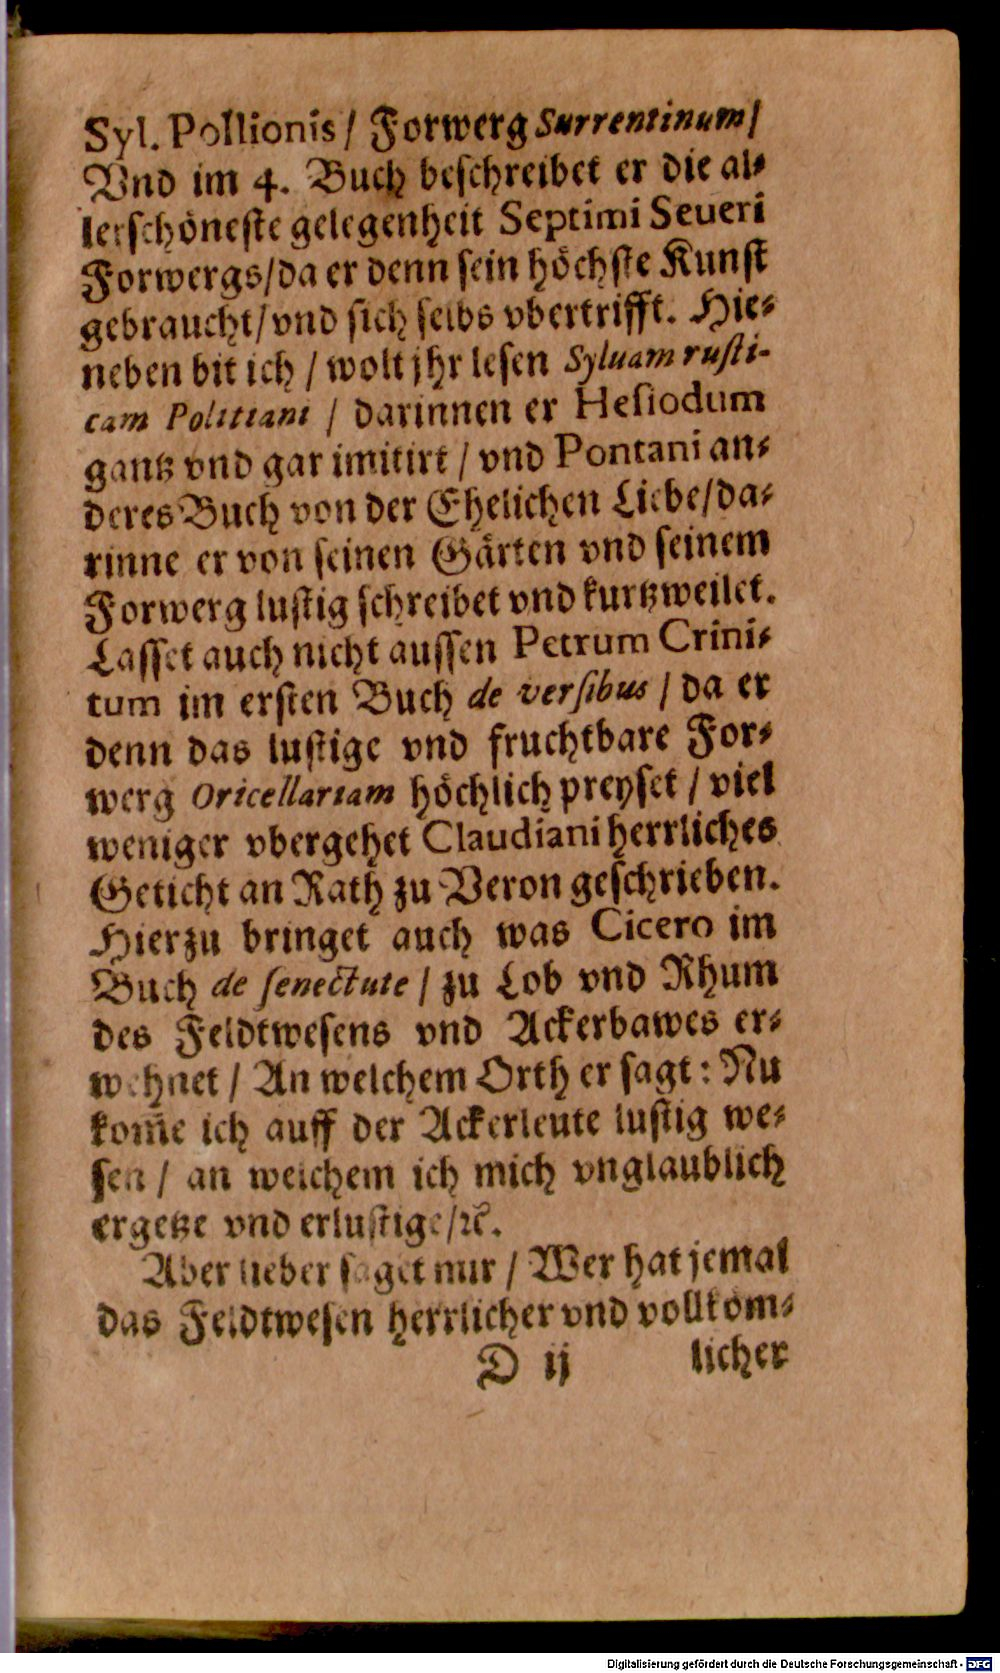 Syl. Pollionis / Forwerg Surrentinum /
Vnd im 4. Buch beschreibet er die al⸗
lerschöneste gelegenheit Septimi Seueri
Forwergs / da er denn sein höchste Kunst
gebraucht / vnd sich selbs vbertrifft. Hie⸗
neben bit ich / wolt jhr lesen Syluam rusti-
cam Politiani / darinnen er Hesiodum
gantz vnd gar imitirt / vnd Pontani an⸗
deres Buch von der Ehelichen Liebe / da⸗
rinne er von seinen Gärten vnd seinem
Forwerg lustig schreibet vnd kurtzweilet.
Lasset auch nicht aussen Petrum Crini⸗
tum im ersten Buch de versibus / da er
denn das lustige vnd fruchtbare For⸗
werg Oricellariam höchlich preyset / viel
weniger vbergehet Claudiani herrliches
Geticht an Rath zu Veron geschrieben.
Hierzu bringet auch was Cicero im
Buch de senectute / zu Lob vnd Rhum
des Feldtwesens vnd Ackerbawes er⸗
wehnet / An welchem Orth er sagt : Nu
kom̃e ich auff der Ackerleute lustig we⸗
sen / an welchem ich mich vnglaublich
ergetze vnd erlustige / ꝛc.
Aber lieber saget nur / Wer hat jemal
das Feldtwesen herrlicher vnd vollkom⸗
D ij licher
Digitalisierung gefördert durch die Deutsche Forschungsgemeinschaft - DFG